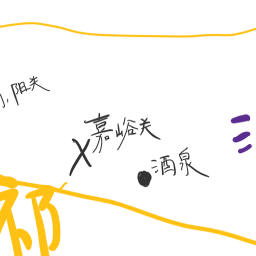 阳关
嘉峪关
酒泉
祁